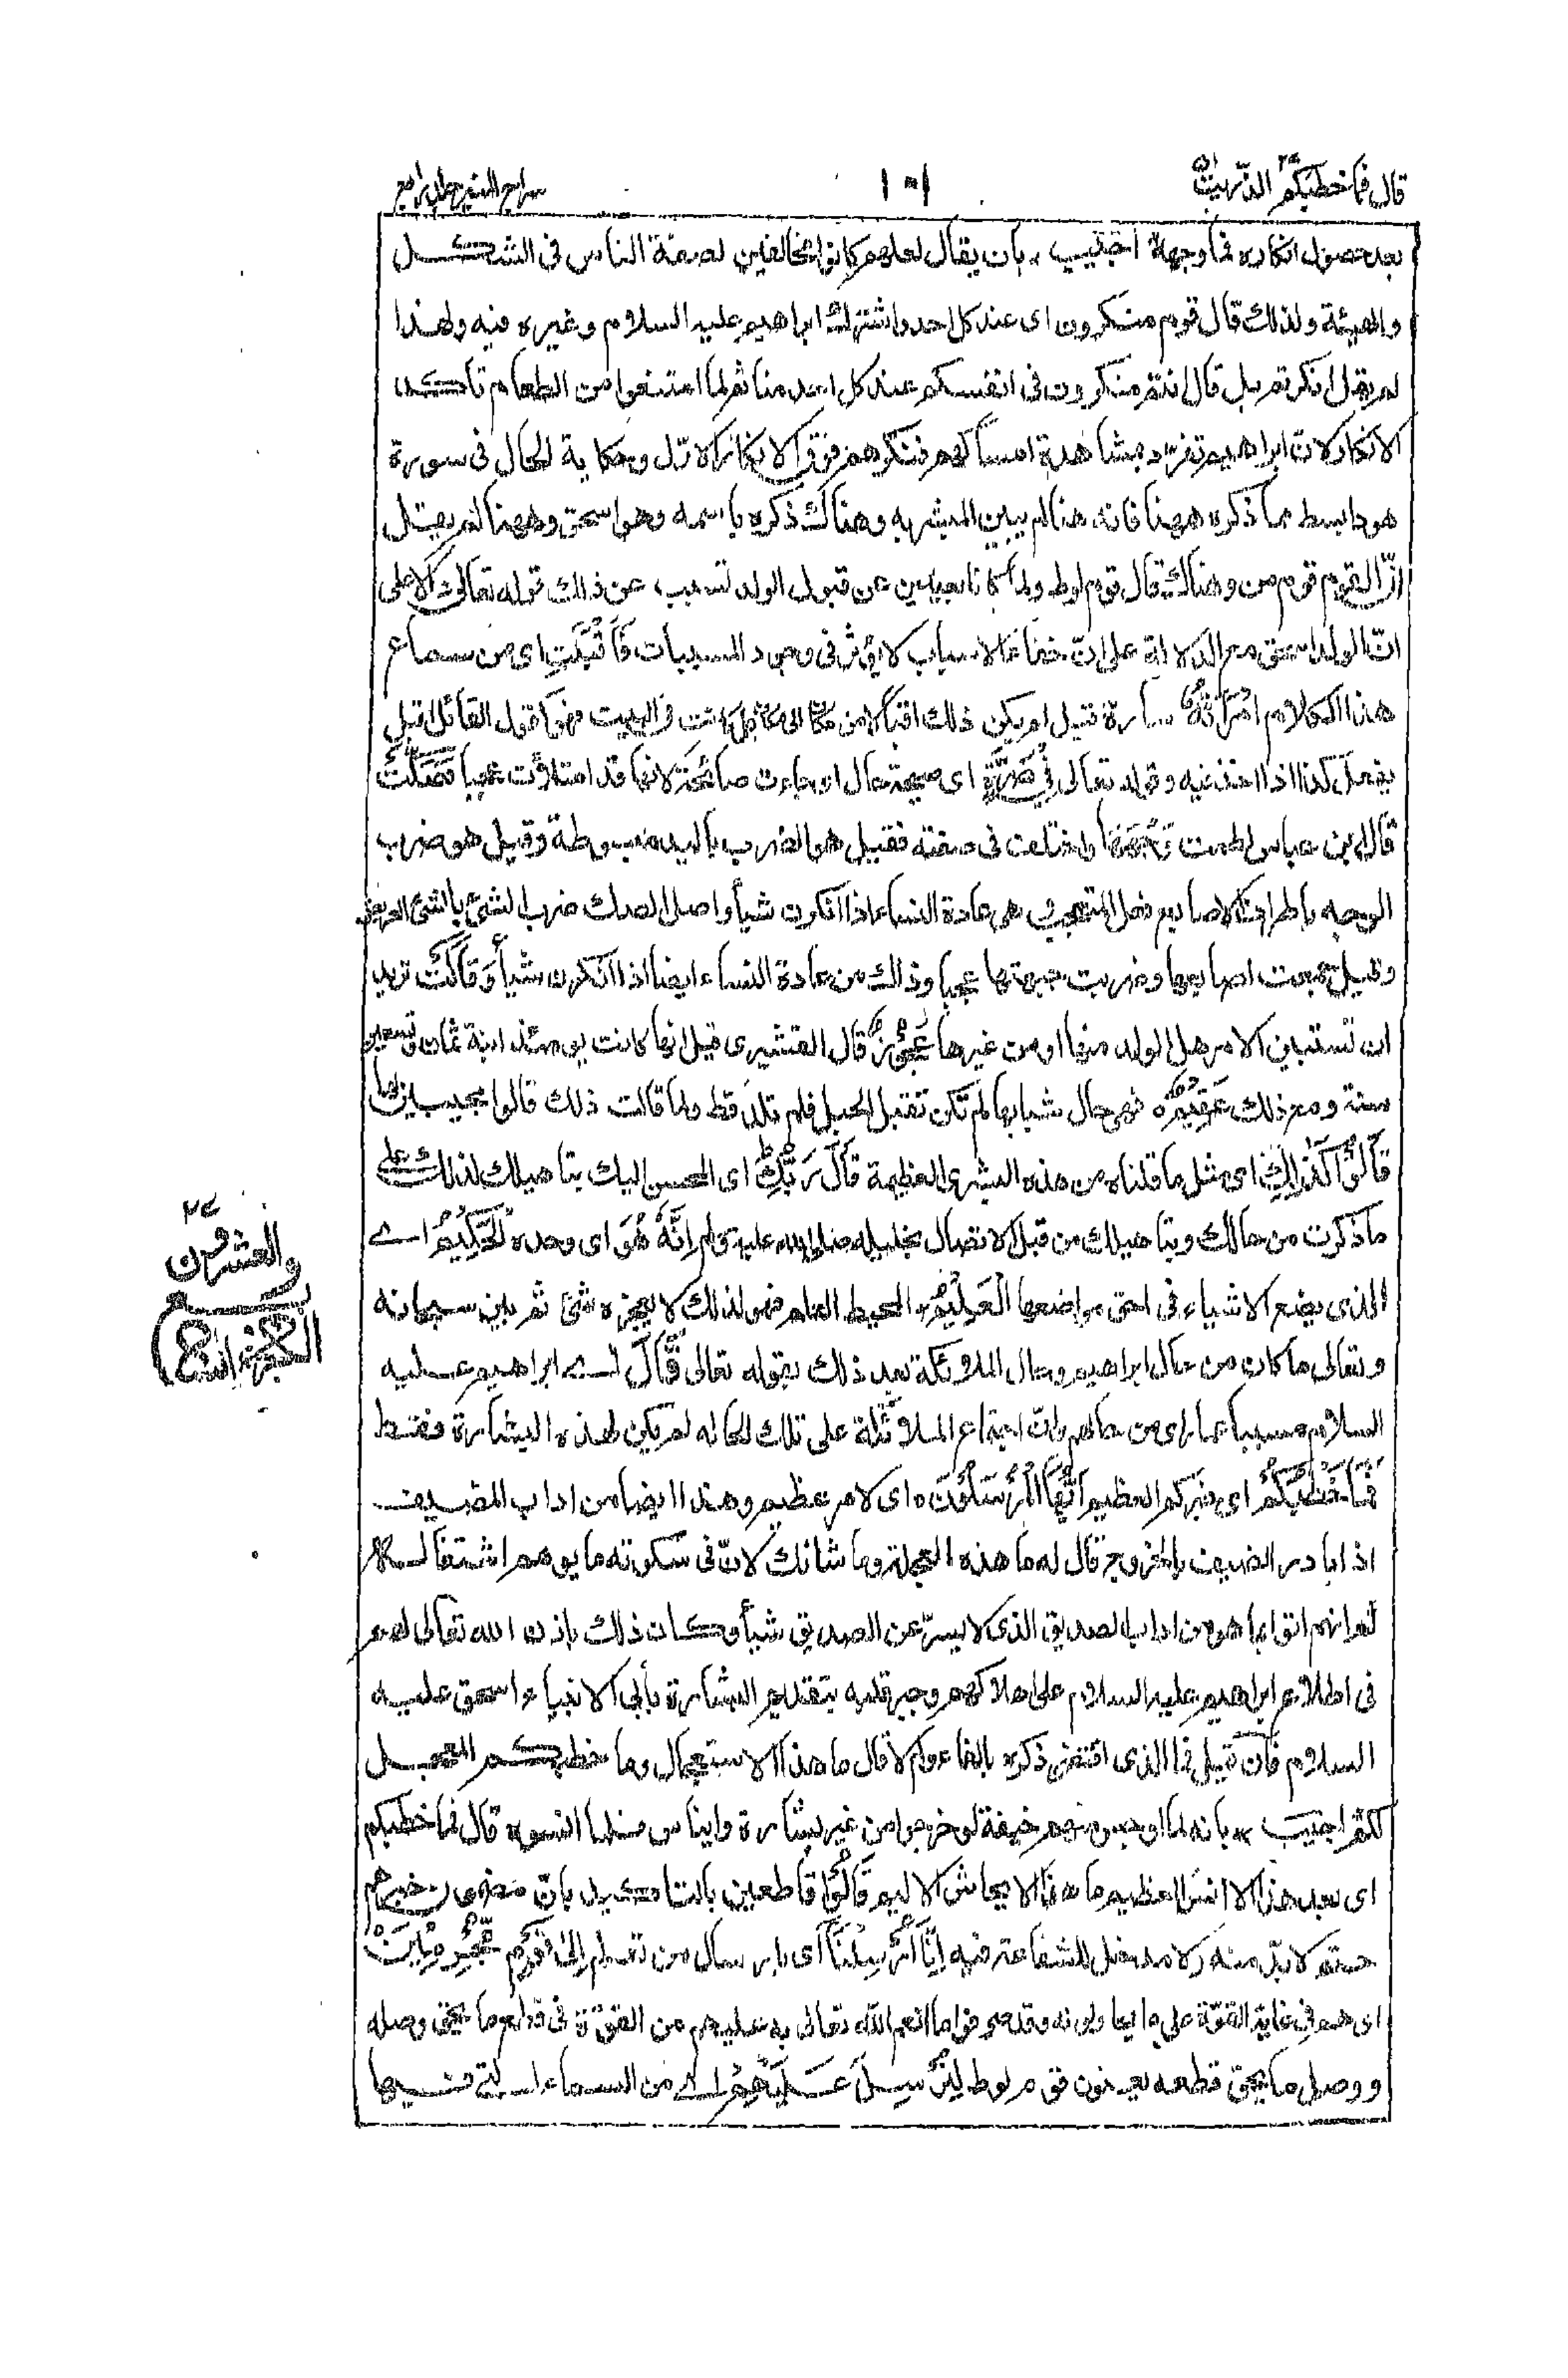 قال فما خطبكم ٢٧ الذّٰريٰت ١٥
١٠١
سراج المنير جلد رابع
بعد حصول انكاره فما وجهه اجيب بان يقال لعلهم كانوا مخالفين لصفة الناس فى الشكل
والهيئة ولذلك قال قوم منكرون اى عند كل احد واشترك ابراهيم عليه السلام وغيره فيه ولهذا
لم يقل انكرتم بل قال انتم منكرون فى انفسكم عند كل احد منا ثم لما امتنعوا من الطعام تأكد
الانكار لان ابراهيم تفرد بمشاهدة امساكهم فنكرهم فوق الانكار الاول وحكاية الحال فى سورة
هود ابسط مما ذكره ههنا فانه هنا لم يبين المبشر به وهناك ذكره باسمه وهو اسحق وههنا لم يقل
انّ القوم قوم من وهناك قال قوم لوط ولما كانا بعيدين عن قبول الولد تسبب عن ذلك قوله تعالى الدال على
انّ الولد اسحق مع الدلالة على انّ خفاء الاسباب لا يؤثر فى وجود المسببات فَأَقْبَلَتِ اى من سماع
هذا الكلام امْرَأَتُهُ سارة قيل لم يكن ذلك اقبالا من مكان الى مكان بل كانت فى البيت فهو كقول القائل اقبل
يفعل كذا اذا اخذ فيه وقوله تعالى فِي صَرَّةٍ اى صيحة حال اى جاءت صائحة لانها قد امتلأت عجبا فَصَكَّتْ
قال ابن عباس لطمت وَجْهَهَا واختلف فى صفته فقيل هو الضرب باليد مبسوطة وقيل هو ضرب
الوجه باطراف الاصابع فعل المتعجب وهى عادة النساء اذا انكرن شيأ واصل الصك ضرب الشئ بالشئ العريض
وقيل جمعت اصابعها وضربت جبهتها عجبا وذلك من عادة النساء ايضا اذا انكرن شيأ وَقَالَتْ تريد
ان تستبين الامر هل الولد منها او من غيرها عَجُوزٌ قال القشيرى قيل انها كانت يومئذ ابنة ثمان وتسعين
سنة ومع ذلك عَقِيمٌ ه فهى حال شبابها لم تكن تقبل الحبل فلم تلد قط ولما قالت ذلك قالوا مجيبين لها
قَالُوا كَذَٰلِكِ اى مثل ما قلناه من هذه البشرى العظيمة قَالَ رَبُّكِ اى المحسن اليك بتأهيلك لذلك على
ما ذكرت من حالك وبتأهيلك من قبل الاتصال بخليله صلى الله عليه وسلم إِنَّهُ هُوَ اى وحده الْحَكِيمُ اے
الذى يضع الاشياء فى احق مواضعها الْعَلِيمُ ه المحيط العلم فهو لذلك لا يعجزه شئ ثم بين سبحانه
وتعالى ما كان من حال ابراهيم وحال الملائكة بعد ذلك بقوله تعالى قَالَ اے ابراهيم عليه
السلام مسببا عما راى من حالهم وانّ اجتماع الملائكة على تلك الحالة لم يكن لهذه البشارة فقط
فَمَا خَطْبُكُمْ اى خبركم العظيم أَيُّهَا الْمُرْسَلُونَ ه اى لامر عظيم وهذا ايضا من اداب المضيف
اذا بادر الضيف بالخروج قال له ما هذه العجلة وما شانك لانّ فى سكوته ما يوهم استثقالہ
ثم انهم اتوا بما هو من اداب الصديق الذى لا يسرّ عن الصديق شيأ وكان ذلك باذن الله تعالى لهم
فى اطلاع ابراهيم عليه السلام على اهلاكهم وجبر قلبه بتقديم البشارة بأبى الانبياء اسحق عليه
السلام فان قيل فما الذى اقتضى ذكره بالفاء ولم لا قال ما هذا الاستعجال وما خطبكم المعجل
لكم اجيب بانه لما اوجس منهم خيفة لو خرجوا من غير بشارة وايناس فلما انسوه قال فما خطبكم
اى بعد هذا الانس العظيم ما هذا الايحاش الاليم قَالُوا قاطعين بالتاكيد بانّ مضمون خبرهم
حتم لا بدّ منه ولا مدخل للشفاعة فيه إِنَّا أُرْسِلْنَا اى بارسال من تعلم إِلَىٰ قَوْمٍ مُجْرِمِينَ
اى هم فى غاية القوّة على ما يحاولونه وقد صرفوا ما انعم الله تعالى به عليهم من القوّة فى قطع ما يحق وصله
ووصل ما يحق قطعه يعنون قوم لوط لِنُرْسِلَ عَلَيْهِمْ اى من السماء التى فيها
الجزء السابع
والعشرون
٢٧